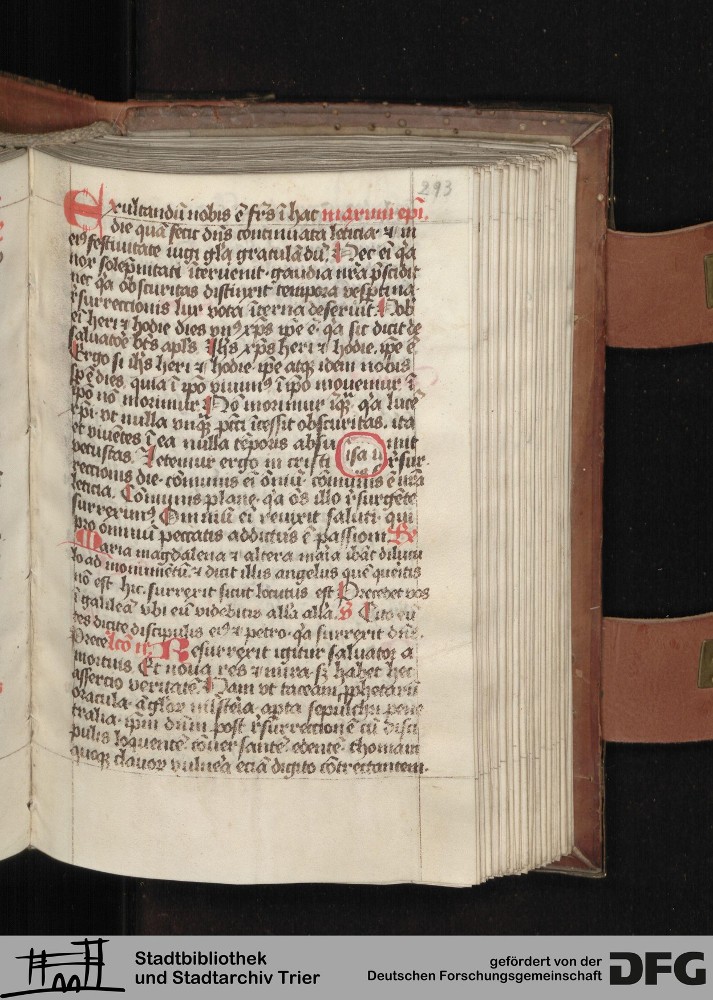 293
Exultandū nobis ē frēs ī hac maximi epī.
die quā fecit dn̄s continuata leticia ⁊ in
eiꝰ festiuitate iugi gl̄a gratulādū. Nec ei q̄a
nox solēpnitati īteruenit gaudia nr̄a p̄scidit
nec q̄a obscuritas distinxit tempora vesptina
r̄surrectionis lux vota īterna deseruit. Nob
ei heri ⁊ hodie dies vnꝰ xp̄s ip̄e ē q̄a sic dicit de
saluatōe bt̄s apl̄s. Ih̄s xp̄s heri ⁊ hodie ip̄e ē
Ergo si ih̄s heri ⁊ hodie ip̄e atqꝫ idem nobis
sp̄ ē dies, quia ī ip̄o viuimꝰ ī ip̄o mouemur ī
ip̄o nō morimur Nō morimur īqꝫ q̄a lucē
xp̄i vt nulla vnqꝫ pcti ītessit obscuritas. ita
et viuētes ī ea nulla tēporis absu mit
isa u
vetustas. Letemur ergo in cristi r̄sur
rectionis die. cōmunis ei oīniū cōmunis ē nr̄a
leticia. Cōmunis plane q̄a os illo r̄surgēte
surreximꝰ Omniū ei reuixit saluti qui
pro omniū peccatis addictus ē passioni Re
Maria magdalena ⁊ altera maria ibāt diluculo
lo ad monumētū. ⁊ dicit illis angelus quē queritis
nō est hic. surrexit sicut locutus est Precedet vos
ī galileā vbi eū videbitis all'a all'a. V̄ Cito eū
tes dicite discipulis eiꝰ ⁊ petro q̄a surrexit dn̄s.
Prece lc̄o ij. Resurrexit igitur saluator a
mortuis Et noua res ⁊ mira sꝫ habet hec
assercio veritatē Nam vt taceam, pphetarū
oracula misteria apta sepulchri pene
tralia ip̄m dn̄m post r̄surrectionē cū disci
pulis loquentē cōuersantē edente thomam
quoqꝫ clauoꝝ vulnera eciā digito cōtrectantem.
Stadtbibliothek
und Stadtarchiv Trier
gefördert von der
Deutschen Forschungsgemeinschaft
DFG